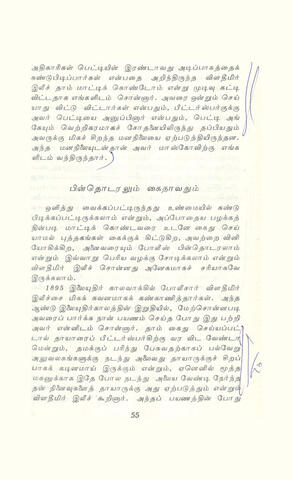 அதிகாரிகள் பெட்டியின் இரண்டாவது அடிப்பாகத்தைக்
கண்டுபிடிப்பார்கள் என்பதை அறிந்திருந்த விளதீமிர்
இலீச் தாம் மாட்டிக் கொண்டோம் என்று முடிவு கட்டி
விட்டதாக எங்களிடம் சொன்னார். அவரை ஒன்றும் செய்
யாது விட்டு விட்டார்கள் என்பதும், பீட்டர்ஸ்பர்க்குக்கு
அவர் பெட்டியை அனுப்பினார் என்பதும், பெட்டி அங்
கேயும் வெற்றிகரமாகச் சோதனையிலிருந்து தப்பியதும்
அவருக்கு மிகச் சிறந்த மனநிலையை ஏற்படுத்தியிருந்தன.
அந்த மனநிலையுடன்தான் அவர் மாஸ்கோவிற்கு எங்க
ளிடம் வந்திருந்தார்.
பின்தொடரலும் கைதாவதும்
ஒளித்து வைக்கப்பட்டிருந்தது உண்மையில் கண்டு
பிடிக்கப்பட்டிருக்கலாம் என்றும், அப்போதைய பழக்கத்
தின்படி மாட்டிக் கொண்டவரை உடனே கைது செய்
யாமல் புத்தகங்கள் கைக்குக் கிட்டுகிற, அவற்றை வினி
யோகிக்கிற, அனைவரையும் போலீஸ் பின்தொடரலாம்
என்றும் இவ்வாறு பெரிய வழக்கு சோடிக்கலாம் என்றும்
விளதீமிர் இலீச் சொன்னது அனேகமாகச் சரியாகவே
இருக்கலாம்.
1895 இலையுதிர் காலவாக்கில் போலீசார் விளதீமிர்
இலீச்சை மிகக் கவனமாகக் கண்காணித்தார்கள். அந்த
ஆண்டு இலையுதிர்காலத்தின் இறுதியில், மேற்சொன்னபடி
அவரைப் பார்க்க நான் பயணம் செய்த போது இது பற்றி
அவர் என்னிடம் சொன்னார். தாம் கைது செய்யப்பட்
டால் தாயாரைப் பீட்டர்ஸ்பர்கிற்கு வர விட வேண்டா
மென்றும், தமக்குப் பரிந்து பேசுவதற்காகப் பல்வேறு
அலுவலகங்களுக்கு நடந்து அலைவது தாயாருக்குச் சிறப்
பாகக் கடினமாய் இருக்கும் என்றும், ஏனெனில் மூத்த
மகனுக்காக இதே போல நடந்து அலைய வேண்டி நேர்ந்த
தன் நினைவுகளைத் தாயாருக்கு அது ஏற்படுத்தும் என்றும்
விளதீமிர் இலீச் கூறினார். அந்தப் பயணத்தின் போது
55